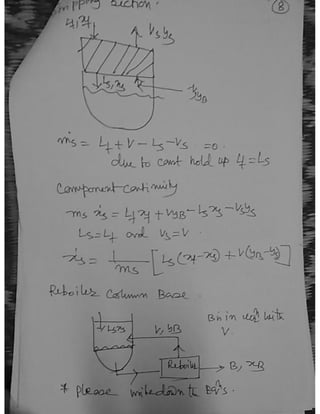 stripping section:
8
L4, x4
Vs ys
Ls, xs
V, yB
ṁs = L4 + V - Ls - Vs = 0.
due to const hold up L4 = Ls
Component continuity
ms ẋs = L4x4 + VyB - Lsxs - Vsys
Ls = L4 and Vs = V.
ẋs = 1/ms [Ls(x4-xs) + V(yB-ys)]
Reboiler Column Base.
Lsxs
V, yB
B in eqb with
V.
Reboiler
B, xB
* Please write down to Eq's.